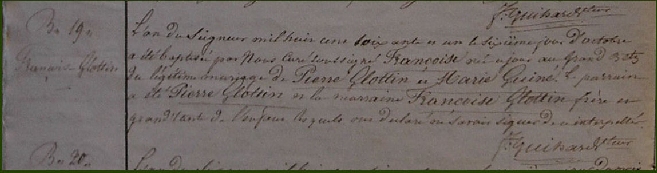 F. Guihard ter
Bn 19e
Françoise Glottin
L'an du Seigneur mil huit cent soixante et un le sixième jour d'octobre
a été baptisée par Nous Curé soussigné Françoise née ce jour au Grand
du légitime mariage de Pierre Glottin et Marie Guiné. Le parrain
a été Pierre Glottin et la marraine Françoise Glottin frère et
grand'tante de l'enfant lesquels ont déclaré ne savoir signer de ce interpellés.
F. Guihard ter
Bn 20e
L'an du